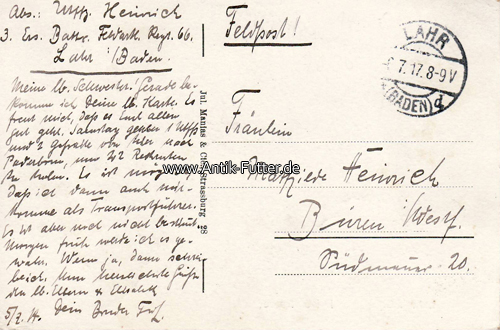 Abs: Uffz. Heinrich
3. Ers. Battr. Feldartl. Regt. 66.
Lahr /Baden.
Feldpost!
LAHR
7.17. 8-9V
(BADEN) d
Meine lb. Schwester! Gerade be-
komme ich Deine lb. Karte. Es
freut mich, daß es Euch allen
gut geht. Samstag gehen 1 Uffz
und 2 Gefreite von hier nach
Paderborn, um 22 Rekruten
zu holen. Es ist möglich,
daß ich dann auch mit-
komme als Transportführer.
Es ist aber noch nicht bestimmt
Morgen früh werde ich es ge-
wahr. Wenn ja, dann schreibe
ich. Nun herzlichste Grüße
den lb. Eltern u. Elisabeth
5/7. 17. Dein Bruder
Jul. Manias & Cie. Strassburg 28
www.Antik-Futter.de
Fräulein
Heinrich
Büren i/Westf.
Südmauer 20.